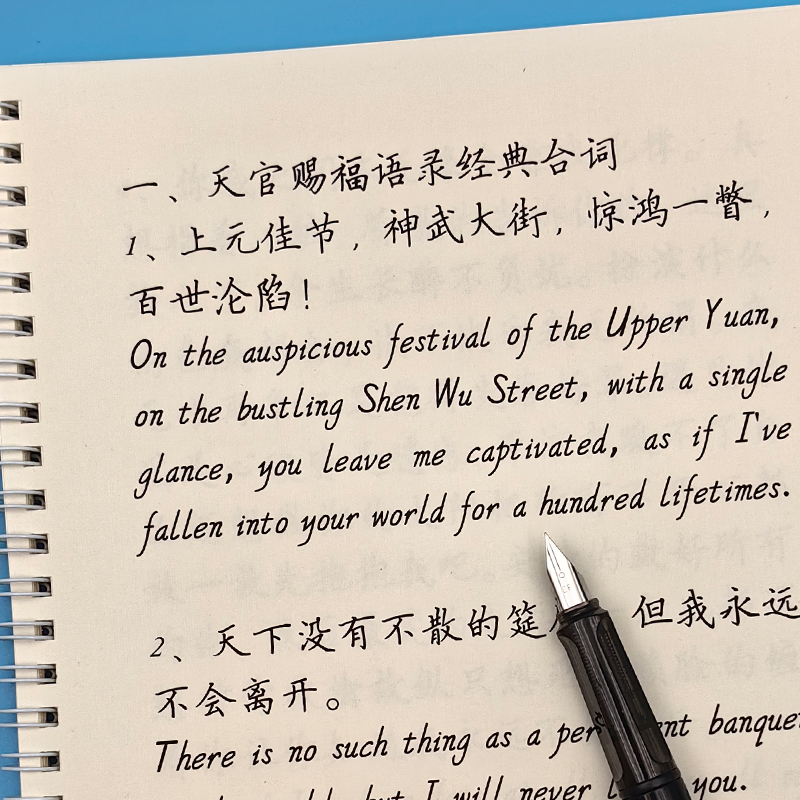 一、天官赐福语录经典台词
1、上元佳节，神武大街，惊鸿一瞥，
百世沦陷！
On the auspicious festival of the Upper Yuan,
on the bustling Shen Wu Street, with a single
glance, you leave me captivated, as if I've
fallen into your world for a hundred lifetimes.
2、天下没有不散的筵 但我永远
不会离开。
There is no such thing as a banquet
but I will never you.